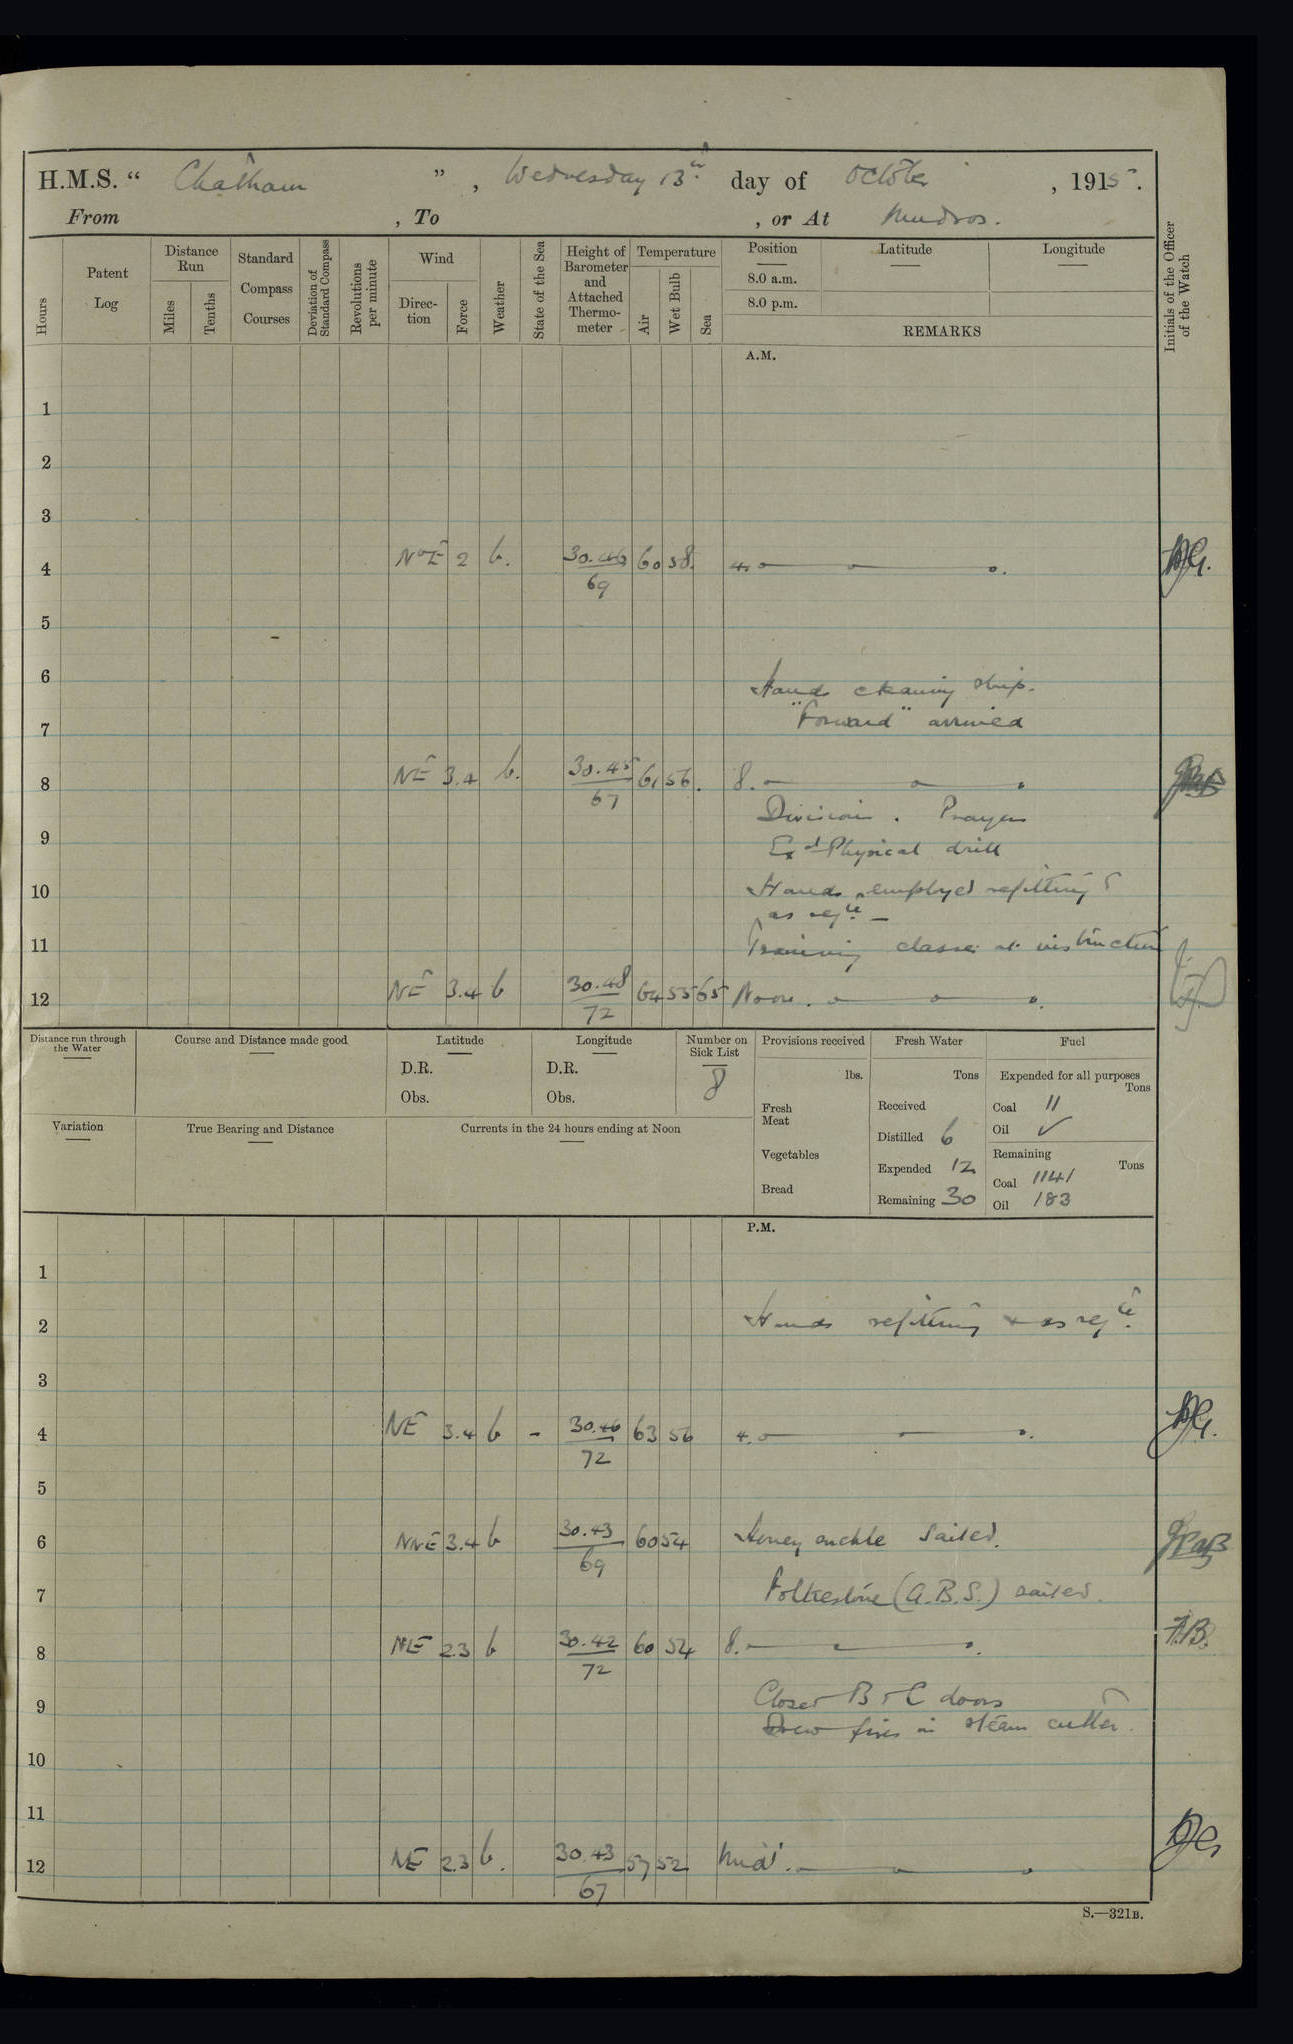 H.M.S. “ Chatham ” , Wednesday 13th day of October , 1915.
From , To , or At Mudros.
Hours
Patent Log
Distance Run
Miles
Tenths
Standard Compass Courses
Deviation of Standard Compass
Revolutions per minute
Wind
Direc- tion
Force
Weather
State of the Sea
Height of Barometer and Attached Thermo- meter
Temperature
Air
Wet Bulb
Sea
Position
Latitude
Longitude
8.0 a.m.
8.0 p.m.
REMARKS
Initials of the Officer of the Watch
A.M.
1
2
3
4 2 b. 30.46 60 58. 4.
69
5
6
Hands cleaning ship.
7 "Forward" arrived
8 NE 3.4 b. 30.45 61 56. 8.
67
Divisions. Prayers
9
Exd Physical drill
10 Hands employed refitting &
as reqte. –
11 Training classes at instruction
12 NE 3.4 b 30.48 64 55 65 Noon.
72
Distance run through the Water
Course and Distance made good
Latitude
D.R.
Obs.
Longitude
D.R.
Obs.
Number on Sick List
8
Provisions received
lbs.
Fresh Meat
Vegetables
Bread
Fresh Water
Tons
Received
Distilled 6
Expended 12
Remaining 30
Fuel
Expended for all purposes
Tons
Coal 11
Oil ✓
Remaining
Tons
Coal 1141
Oil 183
Variation
True Bearing and Distance
Currents in the 24 hours ending at Noon
P.M.
1
2 Hands refitting & as reqte.
3
4 NE 3.4 b - 30.46 63 56 4.
72
5
6 NNE 3.4 b 30.43 60 54 Honeysuckle sailed.
69
7 Folkestone (A.B.S.) sailed.
8 NE 2.3 b 30.42 60 54 8. F.B.
72
9 Closed B & C doors
Drew fires in steam cutter.
10
11
12 NE 2.3 b. 30.43 57 52 Midt.
67
S.—321B.